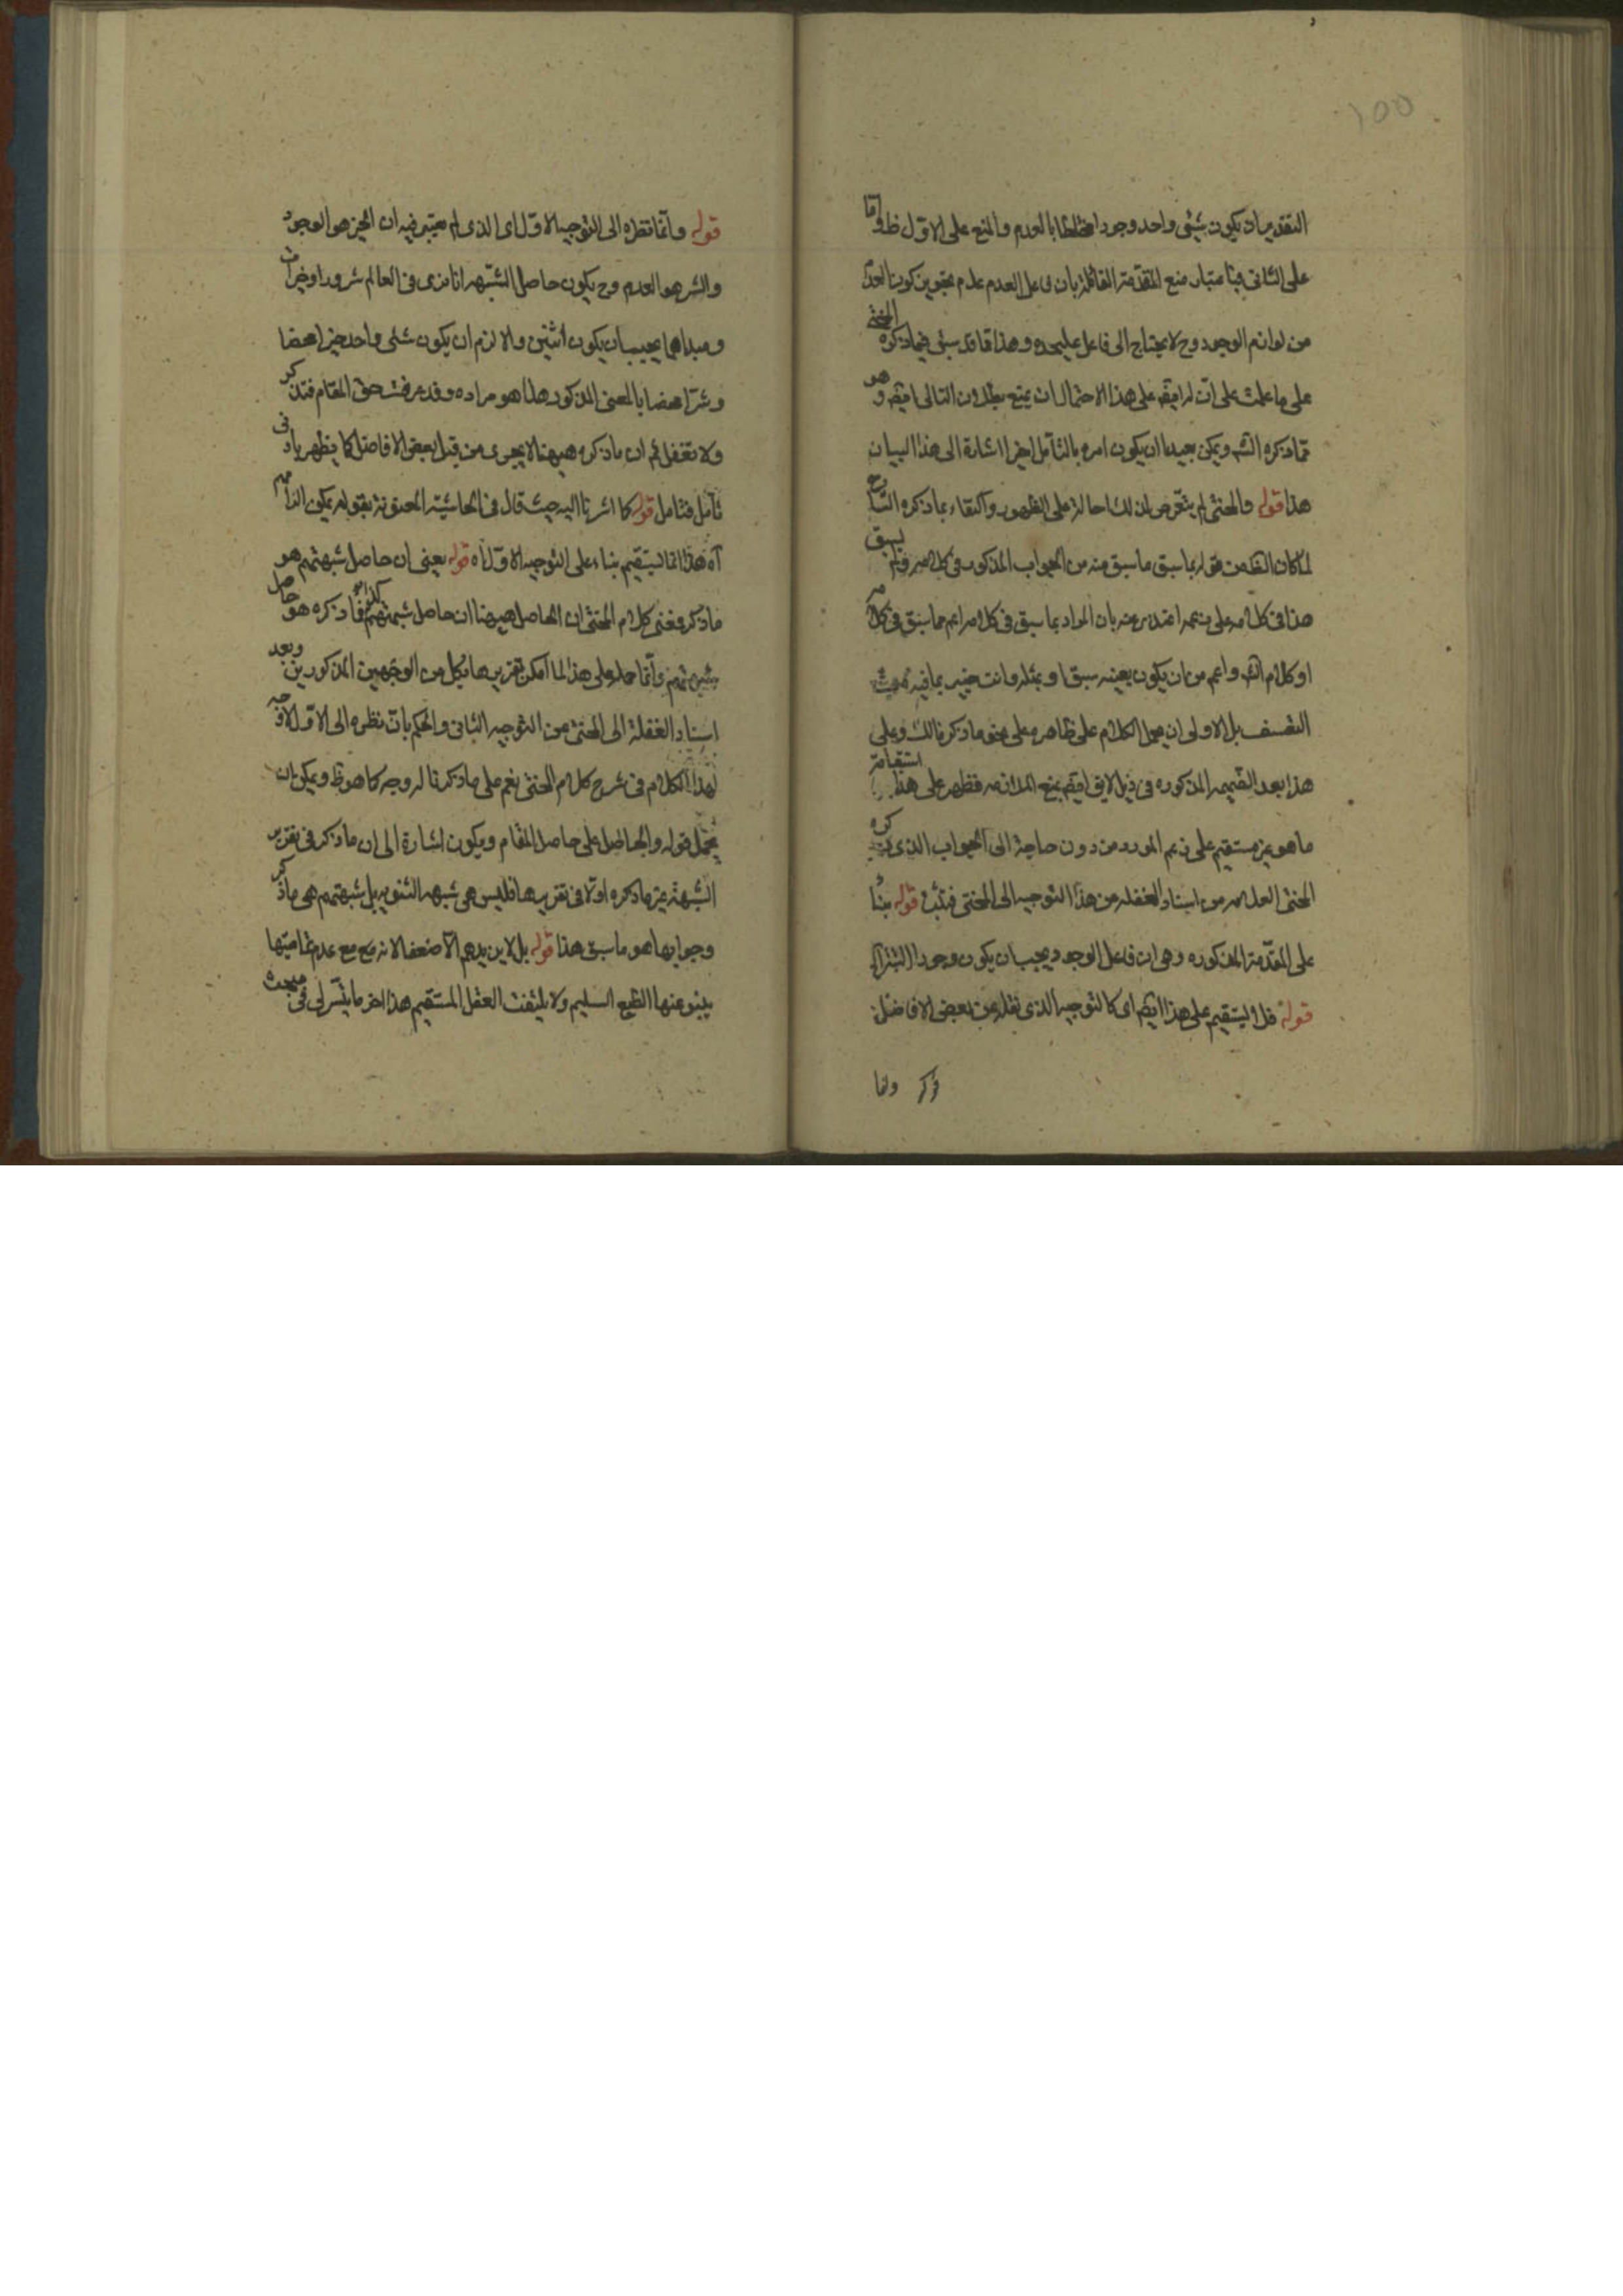 ١٥٥
التقدير ان يكون شيئى واحد وجودا مختلطا بالعدم والمنع على الاوّل ظ واما
على الثانى فباعتبار منع المقدّمة القائلة بان فاعل العدم عدم بتجويز كون العدم
من لوازم الوجود وح لا يحتاج الى فاعل عليحده وهذا قد سبق فيما ذكره المحشى
على ما علمت على ان له ايضا على هذا الاحتمال ان يمنع بطلان التالى ايضا وهو
مما ذكره الش ويمكن بعيدا ان يكون امره بالتأمل اخيرا اشارة الى هذا البيان
هذا قوله والمحشى لم يتعرض لذلك احالة على الظهور واكتفاء بما ذكره الشارح
لما كان الظ من قوله بما سبق ما سبق منه من الجواب المذكور فى كلامه ولم يسبق
هذا فى كلامه على زعمه اعتذر عنه بان المراد بما سبق فى كلامه اعم مما سبق فى كلامه
او كلام الش واعم من ان يكون بعينه سبق او بمثله وانت خبير بما فيه من
التعسف بل الاولى ان يحمل الكلام على ظاهره على نحو ما ذكرنا لك وعلى
هذا بعد الضميمه المذكوره فى ذيل لايق ايضا بمنع الملازمه فظهر على هذا استقامة
ما هو غير مستقيم على زعم المورد من دون حاجة الى الجواب الذى ذكره
المحشى العلامه من اسناد الغفله من هذا التوجيه الى المحشى فتثبت قوله بناء
على المقدّمة المذكوره وهى ان فاعل الوجود يجب ان يكون وجودا
قوله فلا يستقيم على هذا ايضا اى كالتوجيه الذى نقله عن بعض الافاضل
ذكر وانما
قوله وانما نظره الى التوجيه الاوّل اى الذى لم يعتبر فيه ان الخير هو الوجود
والشر هو العدم وح يكون حاصل الشبهه انا نرى فى العالم شرورا وخيرات
ومبداهما يجب ان يكون اثنين والا لزم ان يكون شئى واحد خيرا محضا
وشرّا محضا بالمعنى المذكور هذا هو مراده وقد عرفت حق المقام فتذكر
ولا تغفل ثم ان ما ذكره هيهنا لا يجرى من قبل بعض الافاضل كما يظهر بادنى
تأمل فتامل قوله كما اشرنا اليه حيث قال فى الحاشية المعنونة بقوله يكون
آه هذا انما يستقيم بناء على التوجيه الاوّل آه قوله يعنى ان حاصل شبهتهم هو
ما ذكر فمعنى كلام المحشى ان الحاصل هيهنا ان حاصل شبهتهم كذا فما ذكره هو حاصل
شبهتهم وانما حمله على هذا لما امكن تقريرها بكل من الوجهين المذكورين وبعد
اسناد الغفلة الى المحشى من التوجيه الثانى والحكم بان نظره الى الاوّل لا وجه
لهذا الكلام فى شرح كلام المحشى نعم على ما ذكرنا له وجه كما هو ظ ويمكن ان
يحمل قوله والحاصل على حاصل المقام ويكون اشارة الى ان ما ذكر فى تقرير
الشبهة غير ما ذكره اوّلا فى تقريرها فليس هى شبهه الثنويه بل شبهتهم هى ما ذكر
وجوابها هو ما سبق هذا قوله بل لا يزيدهم الا ضعفا لانه مع عدم تماميتها
ينبو عنها الطبع السليم ولا يلتفت العقل المستقيم هذا اخر ما يتسّر لى فى مبحث